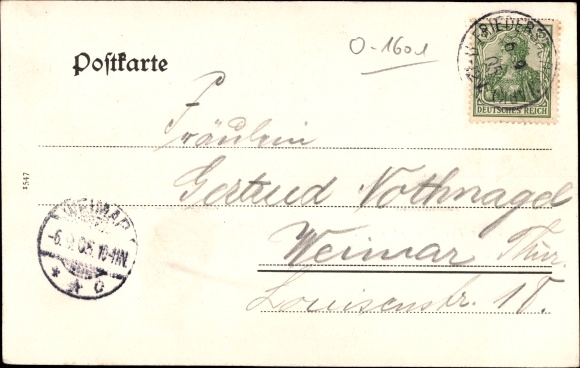 Postkarte
O-1601
FRIEDER
DEUTSCHES REICH
1547
Fräulein
Gertrud Nothnagel
Weimar Thür.
Louisenstr. 18.
WEIMAR
-6. 05. 10-11N.
* * c